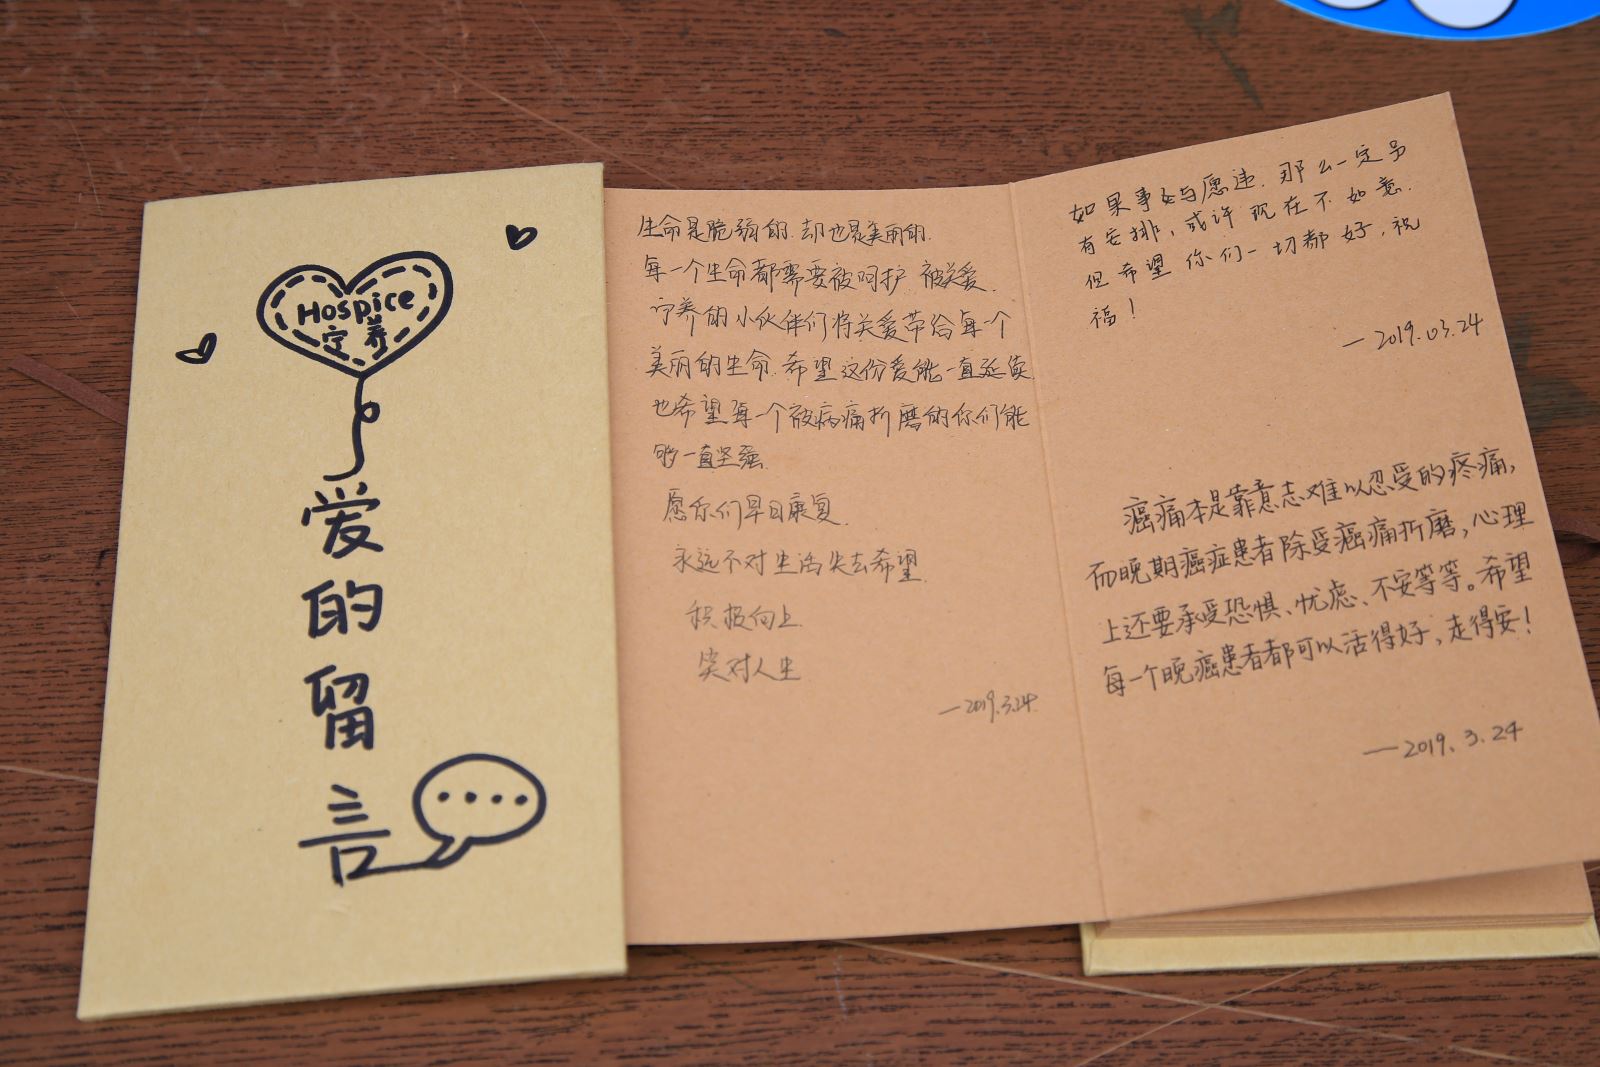 Hospice
宁养
爱
的
留
言
生命是脆弱的.却也是美丽的.
每一个生命都需要被呵护 被关爱.
宁养的小伙伴们将关爱带给每个
美丽的生命.希望这份爱能一直延续.
也希望每一个被病痛折磨的你们能
够一直坚强.
愿你们早日康复.
永远不对生活失去希望.
积极向上.
笑对人生
—2019.3.24.
如果事与愿违.那么一定另
有安排,或许现在不如意.
但希望你们一切都好,祝
福!
—2019.03.24
癌痛本是靠意志难以忍受的疼痛,
而晚期癌症患者除受癌痛折磨,心理
上还要承受恐惧、忧虑、不安等等。希望
每一个晚癌患者都可以活得好,走得安!
——2019.3.24